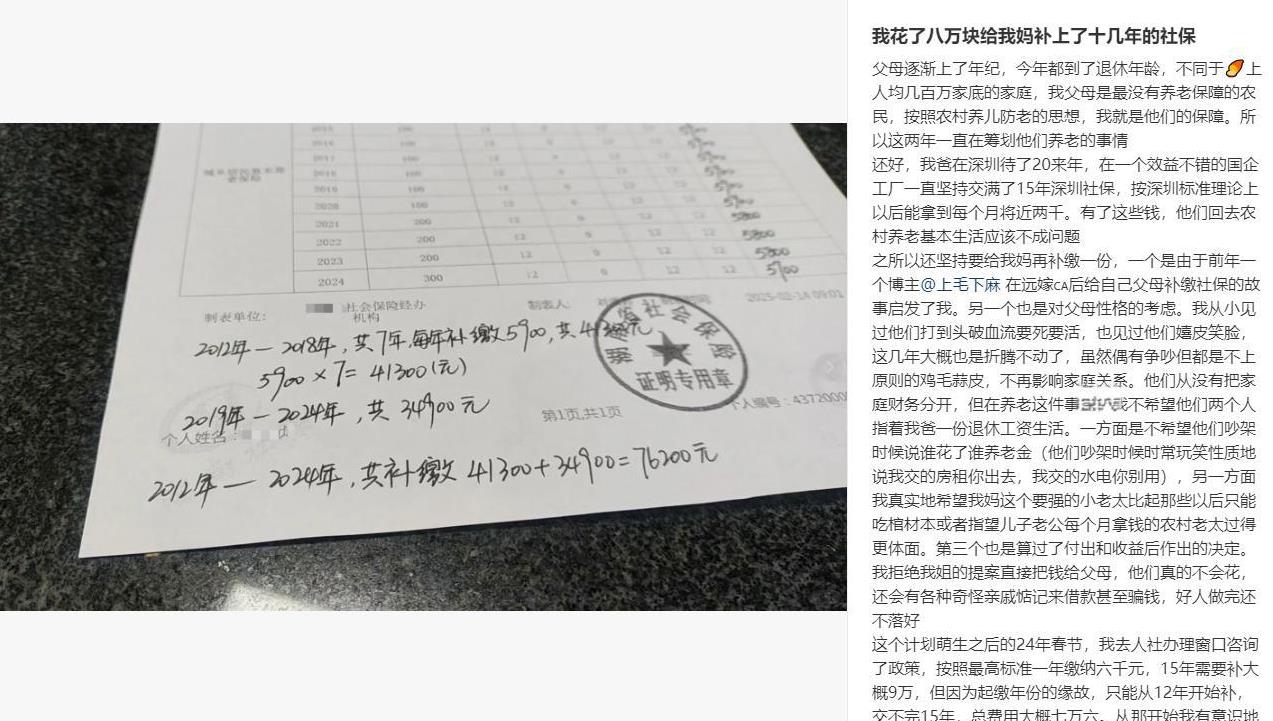 2016 100 12 0 12 12 5900
2017 100 12 0 12 12 5900
城乡居民基本养
老保险
2018 100 12 0 12 12 5900
2019 100 12 0 12 12 5900
2020 100 12 0 12 12 5900
2021 200 12 0 12 12 5800
2022 200 12 0 12 12 5800
2023 200 12 0 12 12 5800
2024 300 12 0 12 12 5700
制表单位:
社会保险经办
机构
制表人:
2025-02-14 09:01
2012年—2018年,共7年,每年补缴5900,共41300元
5900×7=41300(元)
2019年—2024年,共34900元
个人姓名:
第1页,共1页
个人编号:4372000
社会保险
证明专用章
2012年—2024年,共补缴41300+34900=76200元
我花了八万块给我妈补上了十几年的社保
父母逐渐上了年纪,今年都到了退休年龄,不同于🍠上
人均几百万家底的家庭,我父母是最没有养老保障的农
民,按照农村养儿防老的思想,我就是他们的保障。所
以这两年一直在筹划他们养老的事情
还好,我爸在深圳待了20来年,在一个效益不错的国企
工厂一直坚持交满了15年深圳社保,按深圳标准理论上
以后能拿到每个月将近两千。有了这些钱,他们回去农
村养老基本生活应该不成问题
之所以还坚持要给我妈再补缴一份,一个是由于前年一
个博主@上毛下麻 在远嫁ca后给自己父母补缴社保的故
事启发了我。另一个也是对父母性格的考虑。我从小见
过他们打到头破血流要死要活,也见过他们嬉皮笑脸,
这几年大概也是折腾不动了,虽然偶有争吵但都是不上
原则的鸡毛蒜皮,不再影响家庭关系。他们从没有把家
庭财务分开,但在养老这件事 我不希望他们两个人
指着我爸一份退休工资生活。一方面是不希望他们吵架
时候说谁花了谁养老金(他们吵架时候时常玩笑性质地
说我交的房租你出去,我交的水电你别用),另一方面
我真实地希望我妈这个要强的小老太比起那些以后只能
吃棺材本或者指望儿子老公每个月拿钱的农村老太过得
更体面。第三个也是算过了付出和收益后作出的决定。
我拒绝我姐的提案直接把钱给父母,他们真的不会花,
还会有各种奇怪亲戚惦记来借款甚至骗钱,好人做完还
不落好
这个计划萌生之后的24年春节,我去人社办理窗口咨询
了政策,按照最高标准一年缴纳六千元,15年需要补大
概9万,但因为起缴年份的缘故,只能从12年开始补,
交不完15年,总费用大概七万六。从那开始我有意识地